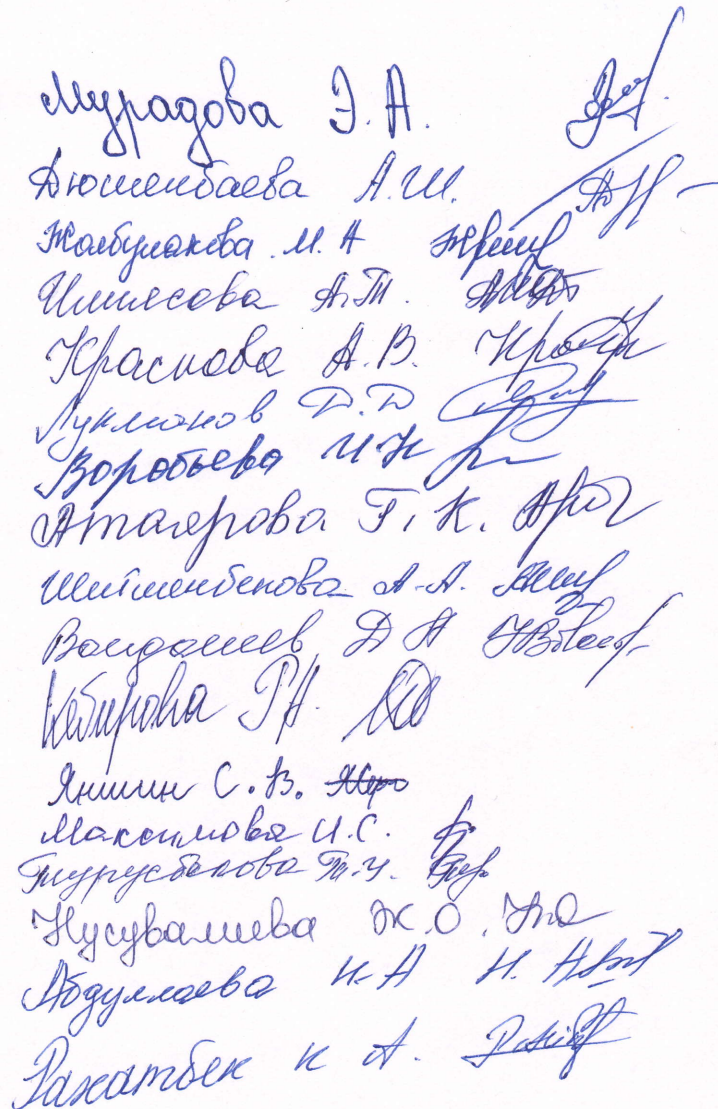 Мурадова Э. А.
Дюшенбаева А. Ш.
Жолбулакова М. А
Илиясова А. Т.
Краснова А. В.
Лукманов Д. Д
Воробьева И. Н
Атаярова Г. К.
Шейшенбекова А. А.
Д А
Кабирова Р А.
Яншин С. В.
Максимова И. С.
Турусбекова Т. У.
Нусувалиева Ж. О.
Абдуллаева Н. А
Рахатбек к А.